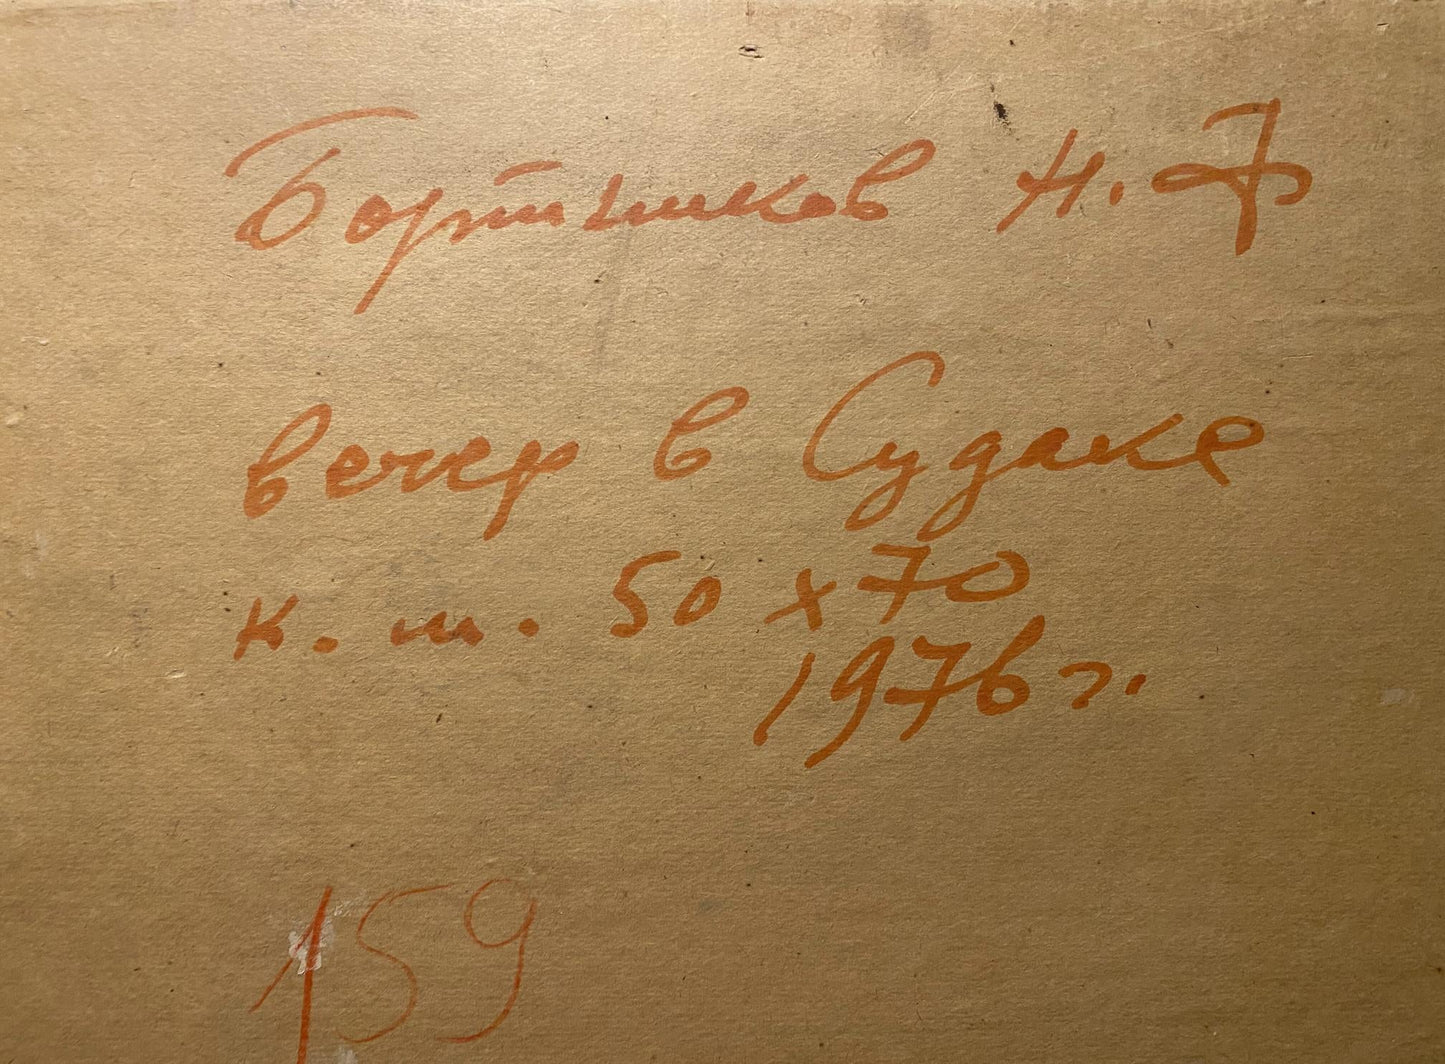 Бортников Н. Ф
вечер в Судаке
к. м. 50 x 70
1976 г.
159